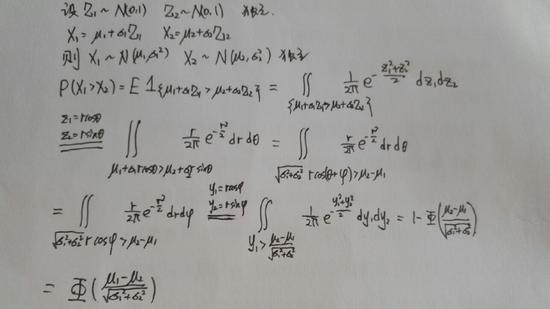 设 Z₁ ~ N(0,1) Z₂ ~ N(0,1) 独立.
X₁ = μ₁+σ₁Z₁ X₂ = μ₂+σ₂Z₂
则 X₁ ~ N(μ₁,σ₁²) X₂ ~ N(μ₂,σ₂²) 独立
P(X₁>X₂) = E 1_{μ₁+σ₁Z₁>μ₂+σ₂Z₂} = ∬_{{μ₁+σ₁Z₁>μ₂+σ₂Z₂}} 1/2π e^{-(z₁²+z₂²)/2} dz₁dz₂
z₁=rcosθ z₂=rsinθ ═ ∬_{μ₁+σ₁rcosθ>μ₂+σ₂rsinθ} r/2π e^{-r²/2} drdθ = ∬_{√(σ₁²+σ₂²) rcos(θ+φ)>μ₂-μ₁} r/2π e^{-r²/2} drdθ
= ∬_{√(σ₁²+σ₂²) rcosφ>μ₂-μ₁} r/2π e^{-r²/2} drdφ y₁=rcosφ y₂=rsinφ ═ ∬_{y₁>(μ₂-μ₁)/√(σ₁²+σ₂²)} 1/2π e^{-(y₁²+y₂²)/2} dy₁dy₂ = 1-Φ((μ₂-μ₁)/√(σ₁²+σ₂²))
= Φ((μ₁-μ₂)/√(σ₁²+σ₂²))